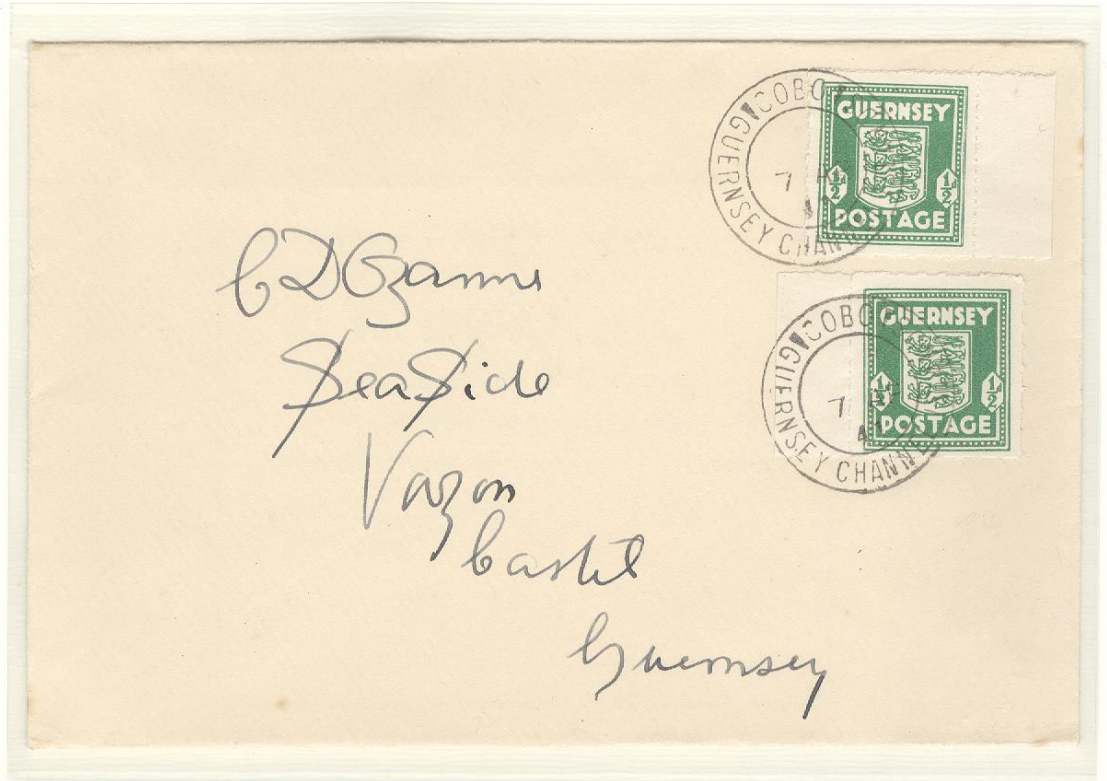 COBO
GUERNSEY CHANN
7 A
4
GUERNSEY
½ ½
POSTAGE
COBO
GUERNSEY CHANNEL
7 AP
41
GUERNSEY
½ ½
POSTAGE
C D Ozanne
SeaSide
Vazon
Castel
Guernsey